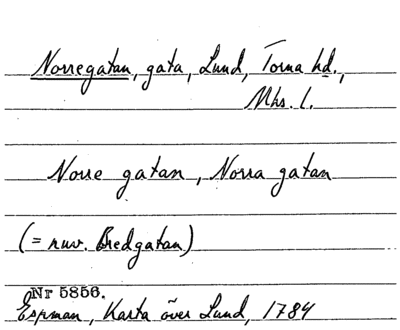 Norregatan, gata, Lund, Torna hd.,
Mhs. l.
Norre gatan, Norra gatan
(= nuv. Bredgatan)
Nr 5856.
Espman, Karta över Lund, 1784